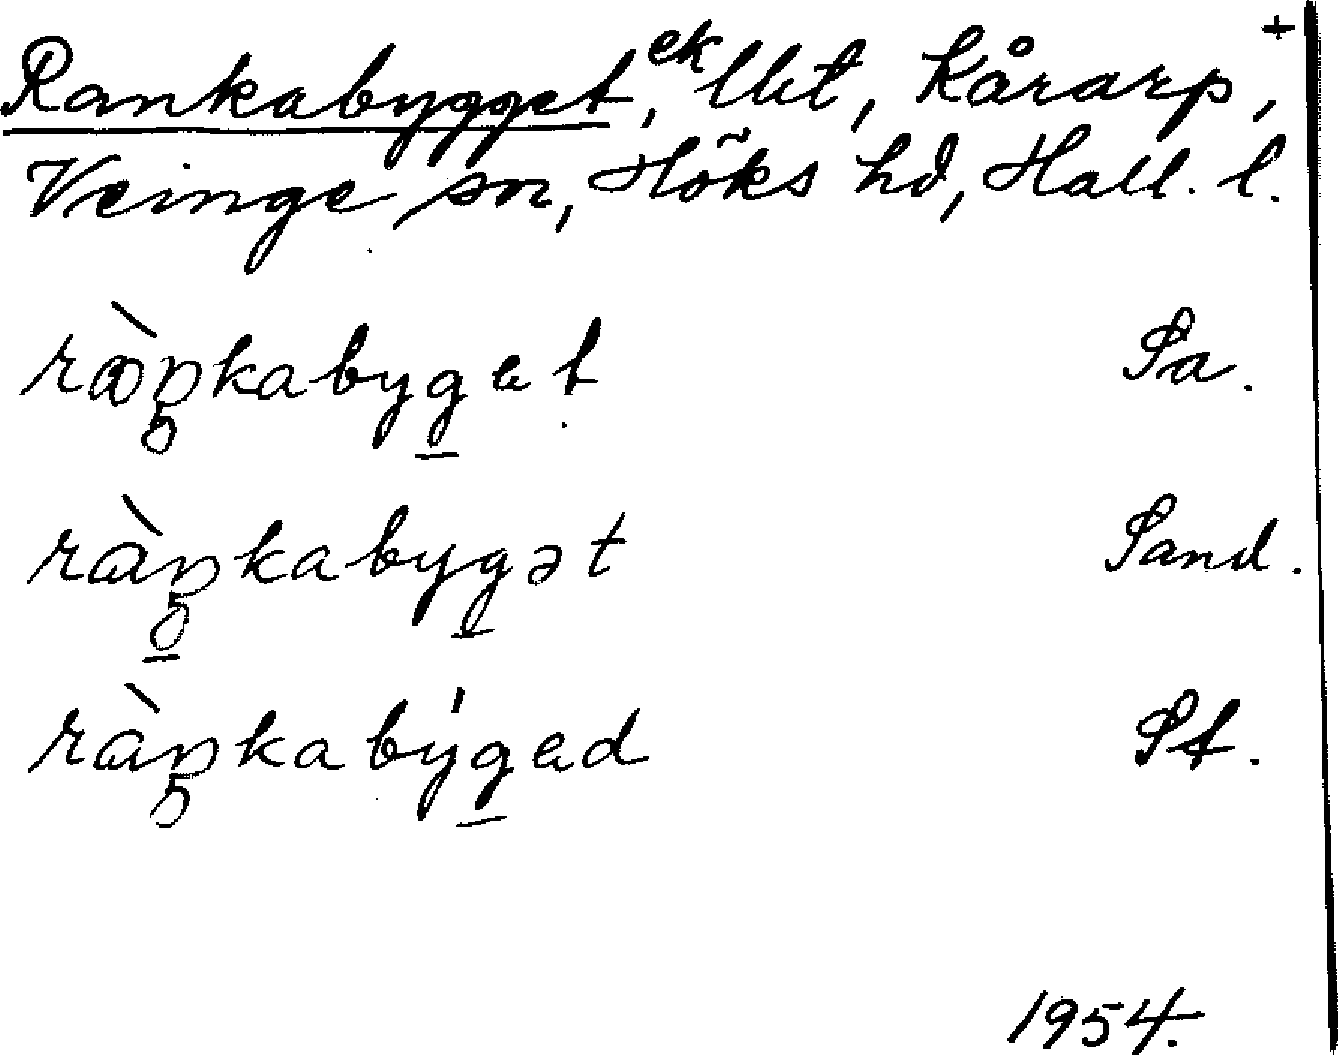 Rankabygget, ek lht, Kårarp, +
Veinge sn, Höks hd, Hall. l.
ràŋkabyget Sa.
ràŋkabygət Sand.
ràŋkabýged St.
1954.